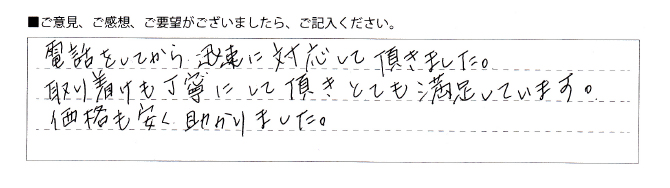 ■ご意見、ご感想、ご要望がございましたら、ご記入ください。
電話をしてから迅速に対応して頂きました。
取り着けも丁寧にして頂きとても満足しています。
価格も安く助かりました。